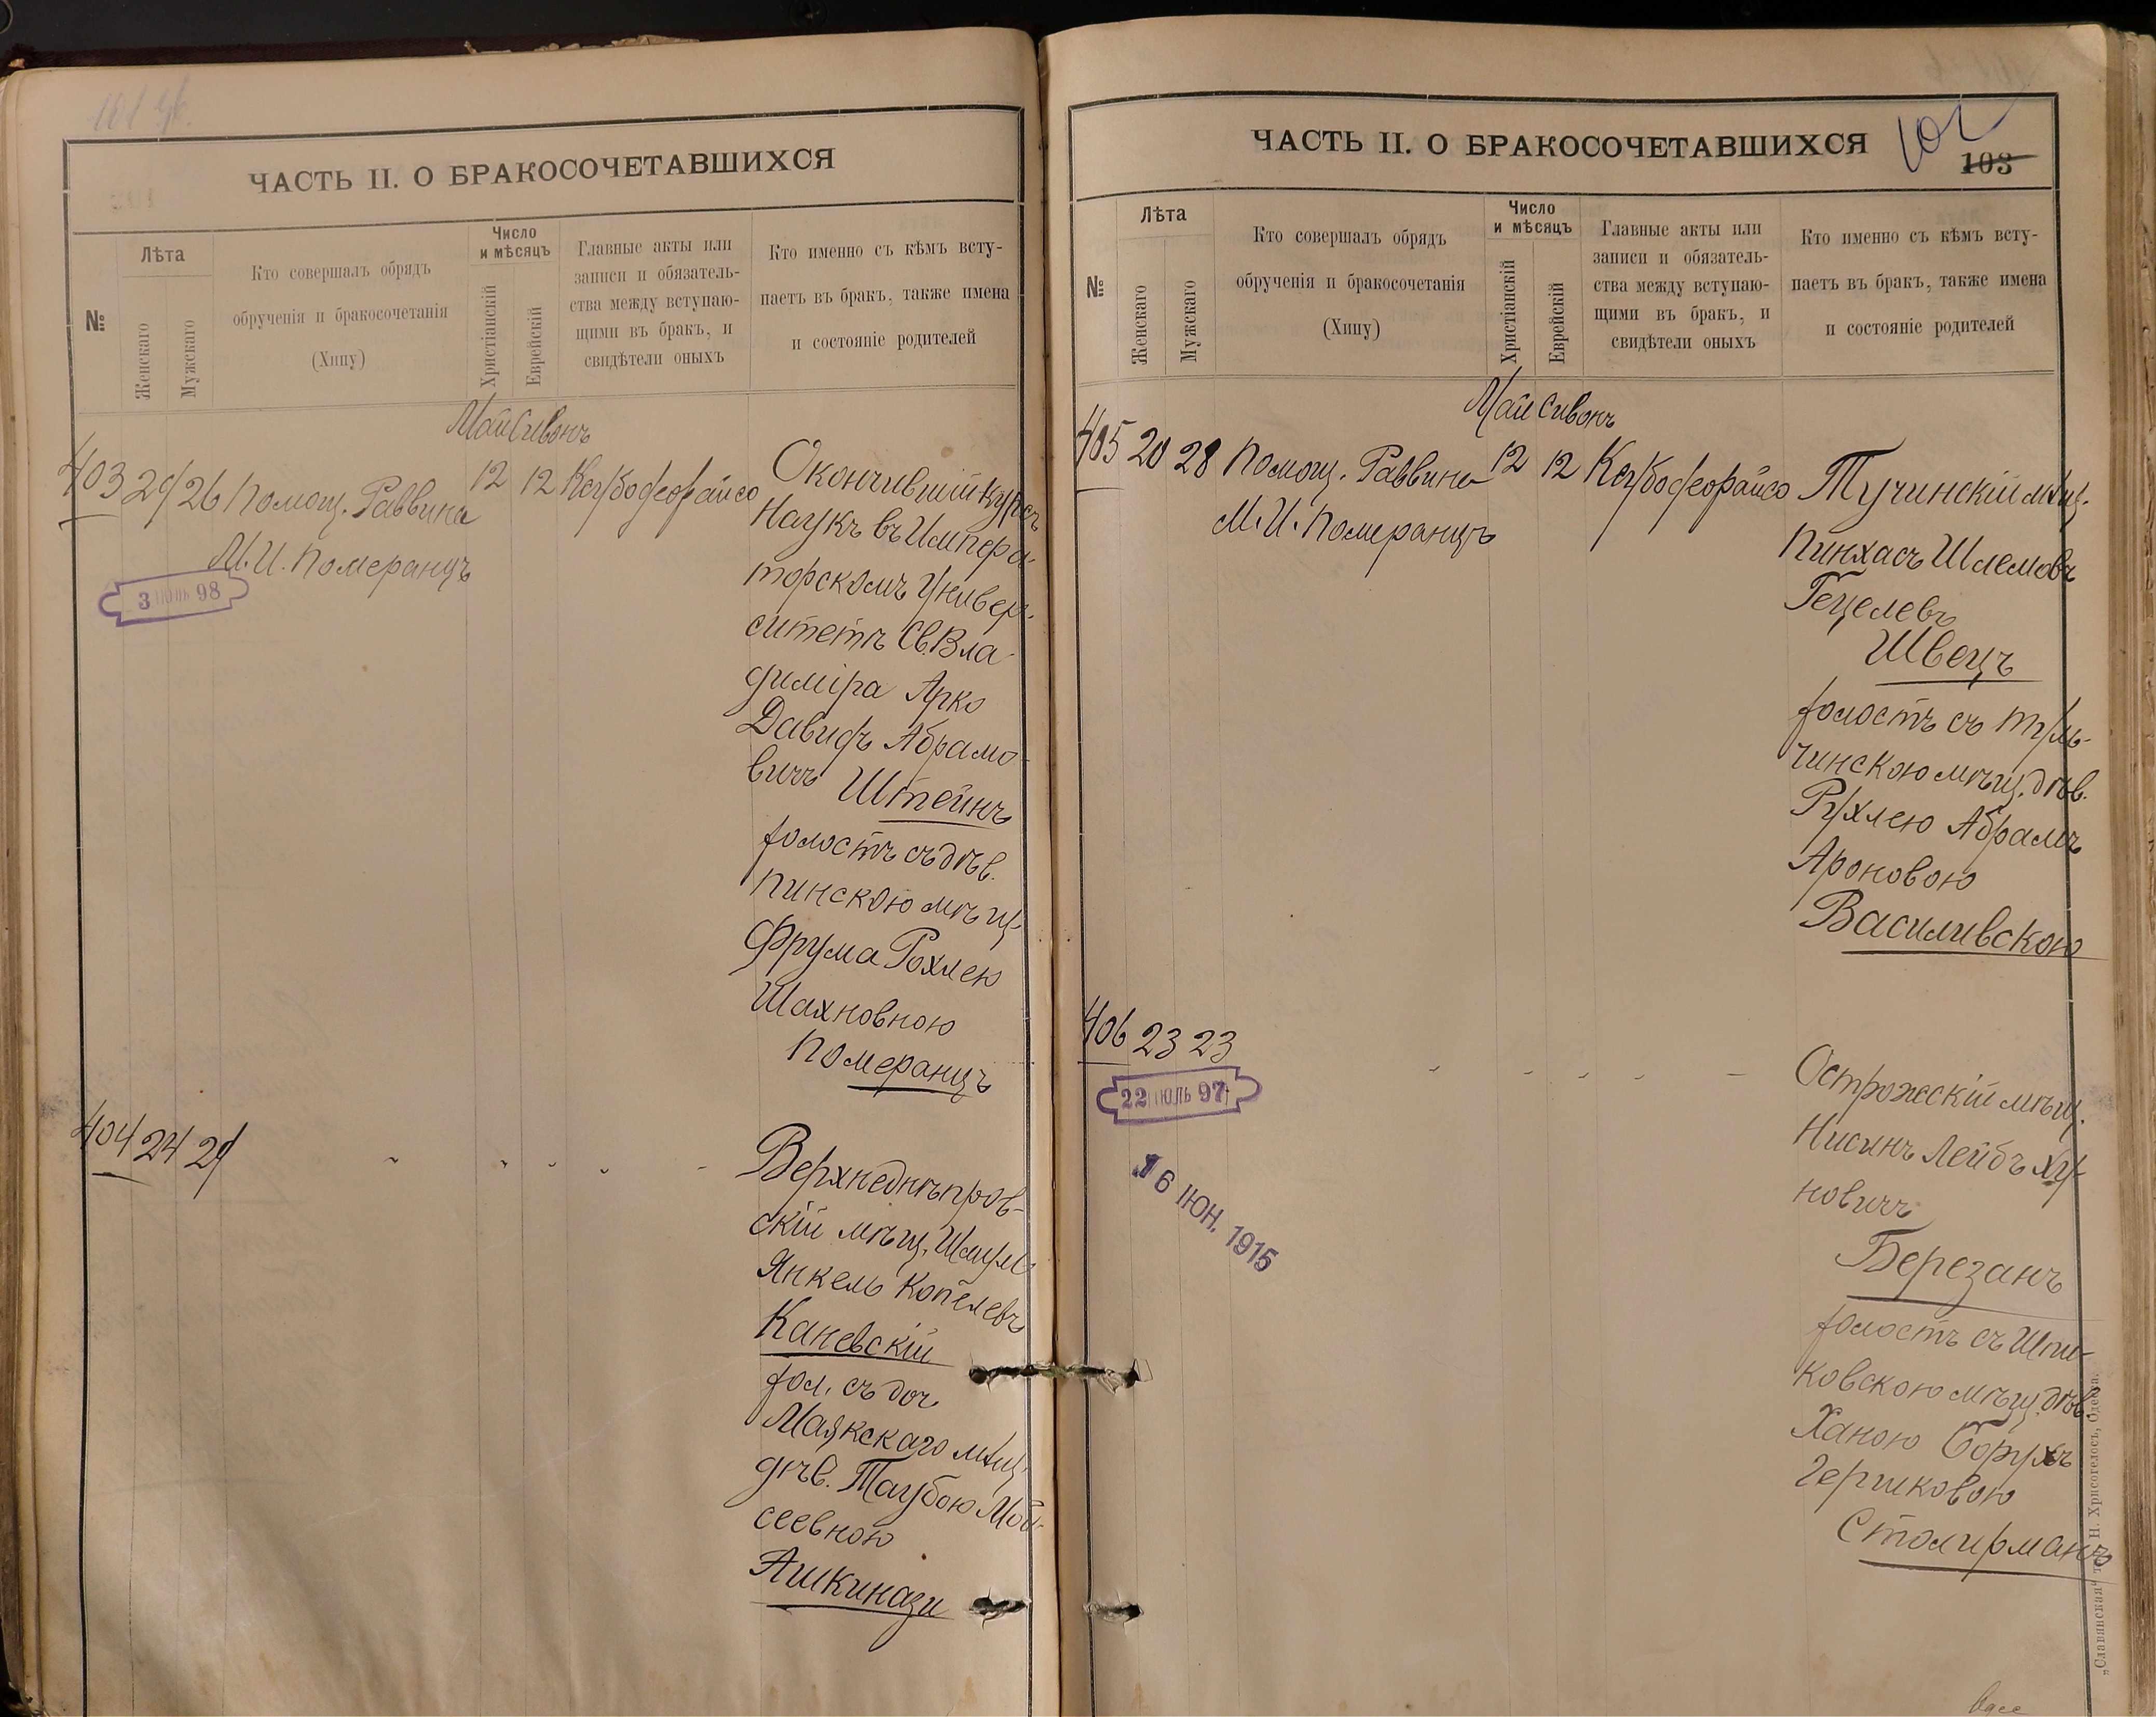 ЧАСТЬ II. О БРАКОСОЧЕТАВШИХСЯ
№
Лѣта
Женскаго
Мужскаго
Кто совершалъ обрядъ
обрученія и бракосочетанія
(Хипу)
Число
и мѣсяцъ
Христіанскій
Еврейскій
Главные акты или
записи и обязатель-
ства между вступаю-
щими въ бракъ, и
свидѣтели оныхъ
Кто именно съ кѣмъ всту-
паетъ въ бракъ, также имена
и состояніе родителей
Май Сивонъ
403 26 Помощ. Раввина 12 12
М. И. Померанцъ
3 ІЮЛЬ 98
Окончившій курсъ
Наукъ въ Импера-
торскомъ Универ-
ситетѣ Св. Вла
диміра Арко
Давидъ Абрамо-
вичъ Штейнъ
холостъ съ дѣв.
пинскою мѣщ.
Фрума Рохлею
Шахновною
Померанцъ
404 24
Верхнеднѣпров-
скій мѣщ. Шмуль
Янкель Копелевъ
Каневскій
хол. съ доч.
Маякскаго мѣщ.
дѣв. Таубою Мои-
сеевною
Ашкинази
ЧАСТЬ II. О БРАКОСОЧЕТАВШИХСЯ
102
103
№
Лѣта
Женскаго
Мужскаго
Кто совершалъ обрядъ
обрученія и бракосочетанія
(Хипу)
Число
и мѣсяцъ
Христіанскій
Еврейскій
Главные акты или
записи и обязатель-
ства между вступаю-
щими въ бракъ, и
свидѣтели оныхъ
Кто именно съ кѣмъ всту-
паетъ въ бракъ, также имена
и состояніе родителей
Май Сивонъ
405 20 28 Помощ. Раввина 12 12
М. И. Померанцъ
Тучинскій мѣщ.
Пинхасъ Шлемовъ
Гецелевъ
Швецъ
холостъ съ Туль-
чинскою мѣщ. дѣв.
Рухлею Абрамъ
Ароновою
Василивскою
406 23 23
22 ІЮЛЬ 97
16 ІЮН. 1915
Острожскій мѣщ.
Нисинъ Лейбъ Ху-
новичъ
Березанъ
холостъ съ Шпи-
ковскою мѣщ. дѣв.
Ханою Борухъ
Гершковою
Столирманъ
„Славянская“ т. Н. Хрисогелосъ, Одесса.